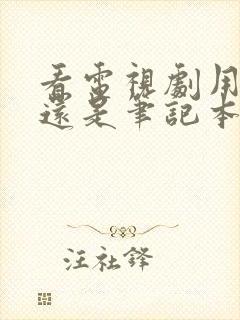 看電視劇用
還是筆記本
汪社鋒